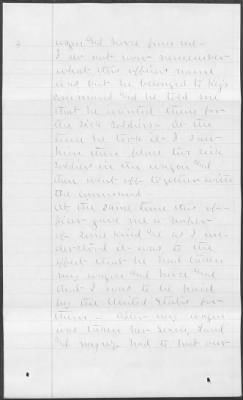 2
wagon and horse from me -
I do not now remember
what this officers name
was but he belonged to
command and he told me
that he wanted them for
the sick soldiers - At the
time he took it I saw
him then place two sick
soldiers in the wagon and
then went off together with
the command.
At the same time this of-
ficer gave me a paper
of some kind and as I un-
derstood it was to the
effect that he had taken
my wagon and horse and
that I was to be paid
by the United States for
them - After my wagon
was taken
had to